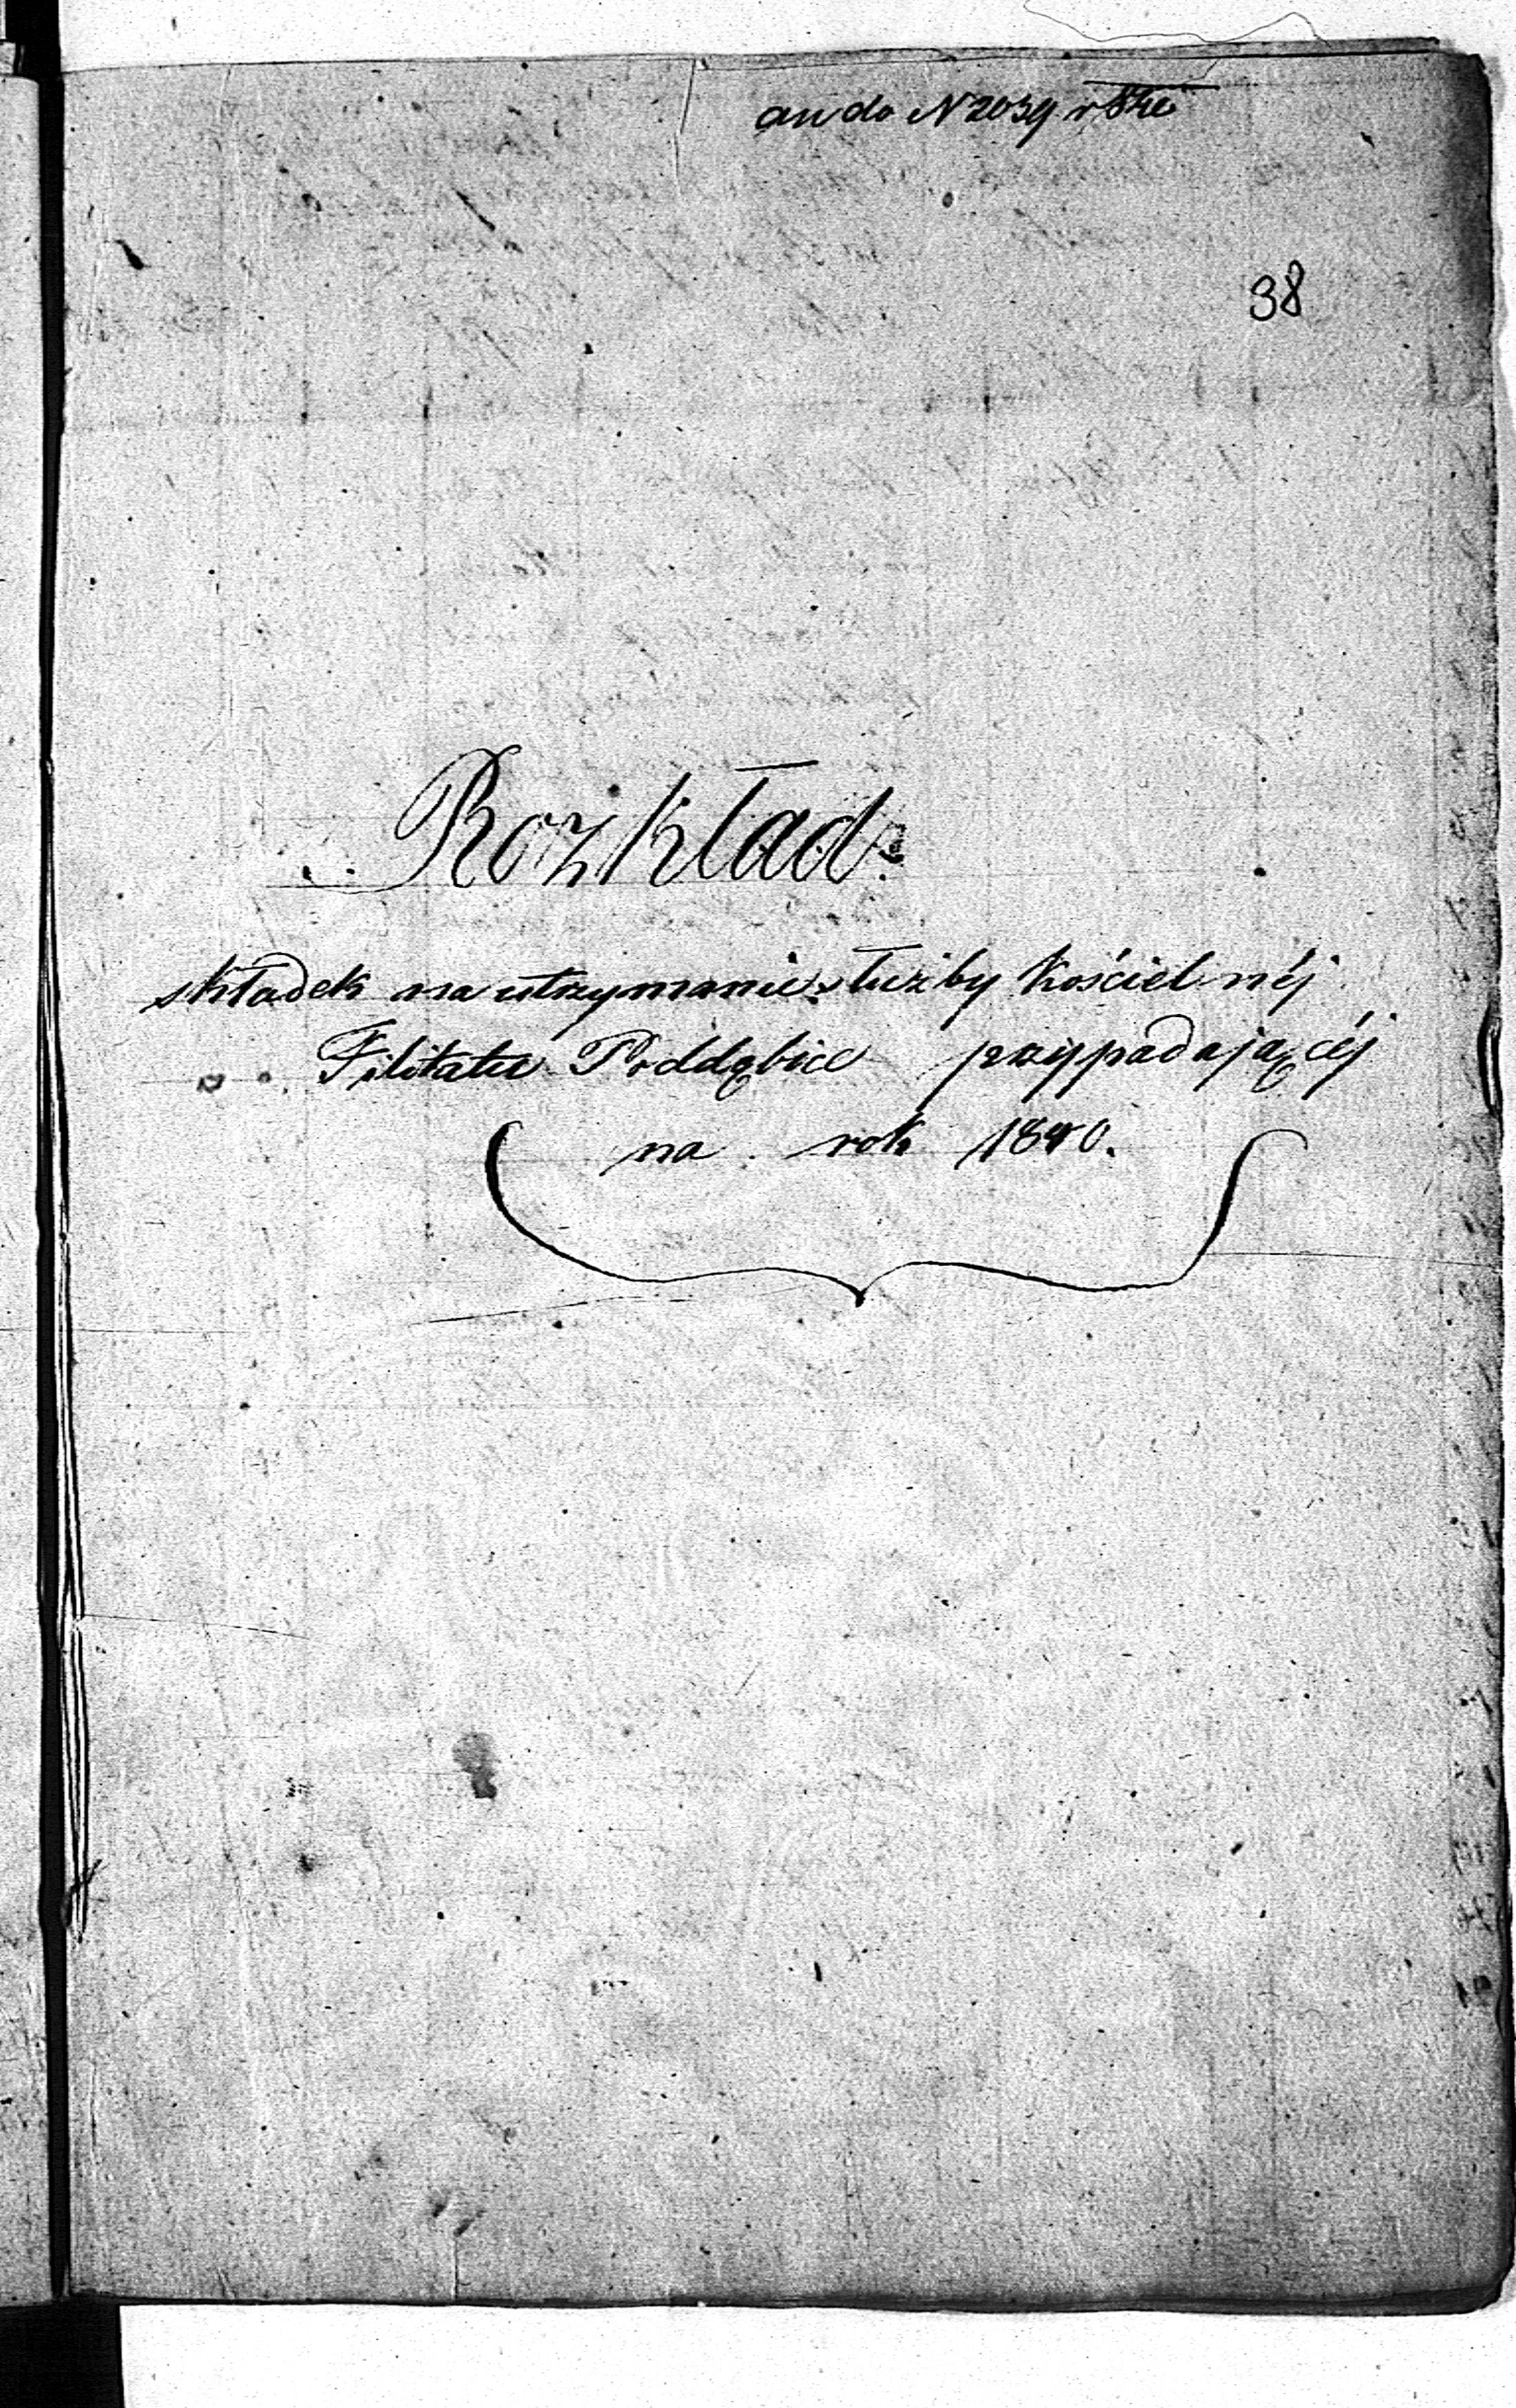 an do N 2039
38
Rozkład
składek na utrzymanie służby Kościelnéj
Filitatu Poddębice przypadającéj
na rok 1840.